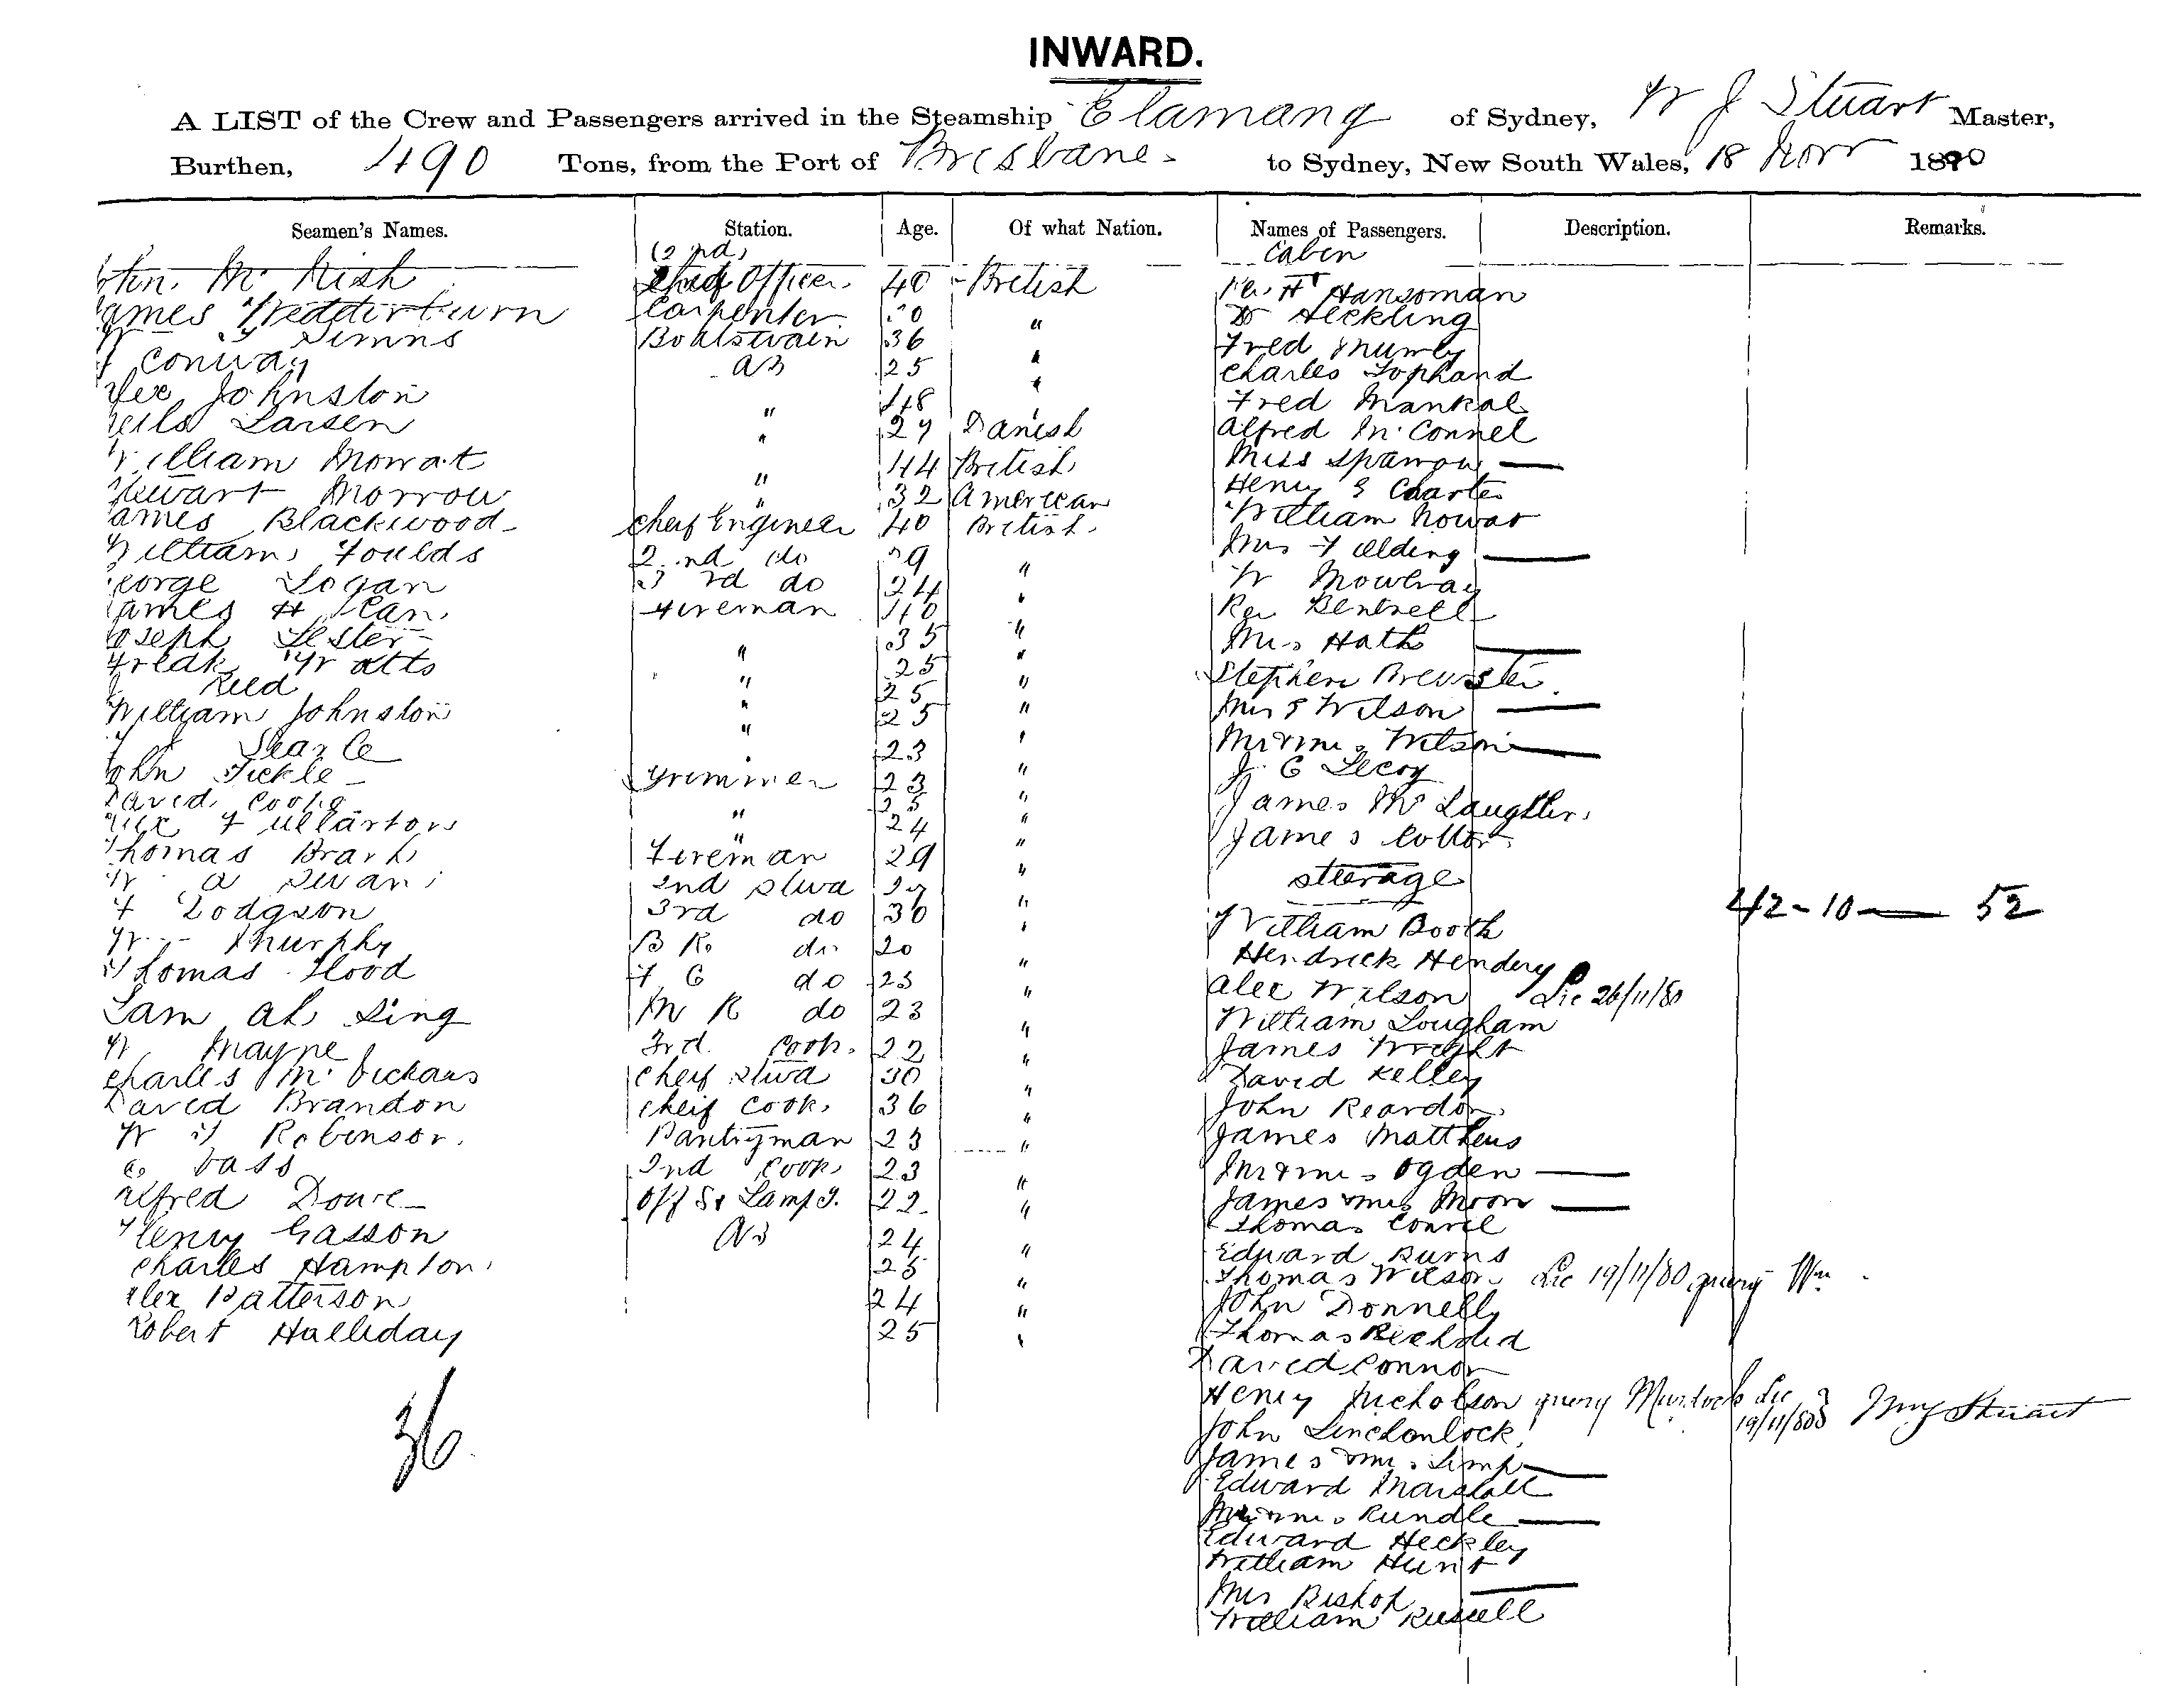 INWARD.
A LIST of the Crew and Passengers arrived in the Steamship Elamang of Sydney, W J Stuart Master,
Burthen, 490 Tons, from the Port of Brisbane to Sydney, New South Wales, 18 Novr 1880
Seamen's Names. Station. Age. Of what Nation. Names of Passengers. Description. Remarks.
(2nd) Cabin
John Mc Nish Cheif Officer 40 British
James Wedderburn Carpenter "
Simms Boatswain 36 "
Conway AB 25 "
Alex Johnston "
Neils Larsen " 27 Danish
William Mowat " 44 British
Stewart Morrow " 32 American
James Blackwood Cheif Engineer 40 British
William Foulds 2nd do "
George Logan 3rd do 24 "
James H Fireman 40 "
Joseph Lester " 35 "
Watts " 25 "
Reed " 25 "
William Johnston " 25 "
Searle 23 "
John Tickle Trimmer 23 "
David Cooke " 25 "
Alex Fullarton " 24 "
Thomas Fireman 29 "
W A Swan 2nd Stwd "
F Dodgson 3rd do 30 "
W Murphy B R do 20 "
Thomas Flood F C do 23 "
Sam Ah Sing M R do 23 "
W Mayne 3rd Cook 22 "
Charles Mc Vickars Cheif Stwd 30 "
David Brandon Cheif Cook 36 "
W Robinson Pantryman 23 "
Bass 2nd Cook 23 "
Alfred Lamp T. 22 "
Henry Gasson AB 24 "
Charles Hampton 25 "
Alex Patterson 24 "
Robert Halliday 25 "
36
Hansoman
Heckling
Fred Mumby
Charles Tophand
Fred Mankal
Alfred McConnel
Miss Sparrow
Henry Charter
William Nowat
Mrs Fielding
W Mowbray
Mrs Hath
Stephen Brewster
Mrs Wilson
Mr & Mrs Wilson
J C Lecoy
James Mc Laughlin
James Cotton
Steerage
42 - 10 — 52
William Booth
Hendrick Hendry
Alec Wilson Lic 26/11/80
William Lougham
James Wright
David Kelley
John Reardon
James Matthews
Mr & Mrs Ogden
James & Mrs Moon
Thomas
Edward Burns
Thomas Wilson Lic 19/11/80 query Wm
John Donnelly
Thomas
David Connor
Henry Nicholson query Murdock Lic 19/11/80 Wm J Stuart
John
James & Mrs
Edward Marshall
Mr & Mrs Rundle
Edward Heckley
William Hunt
Mrs Bishop
William Russell